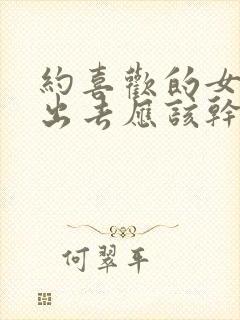 約喜歡的女
出去應該幹
何翠平